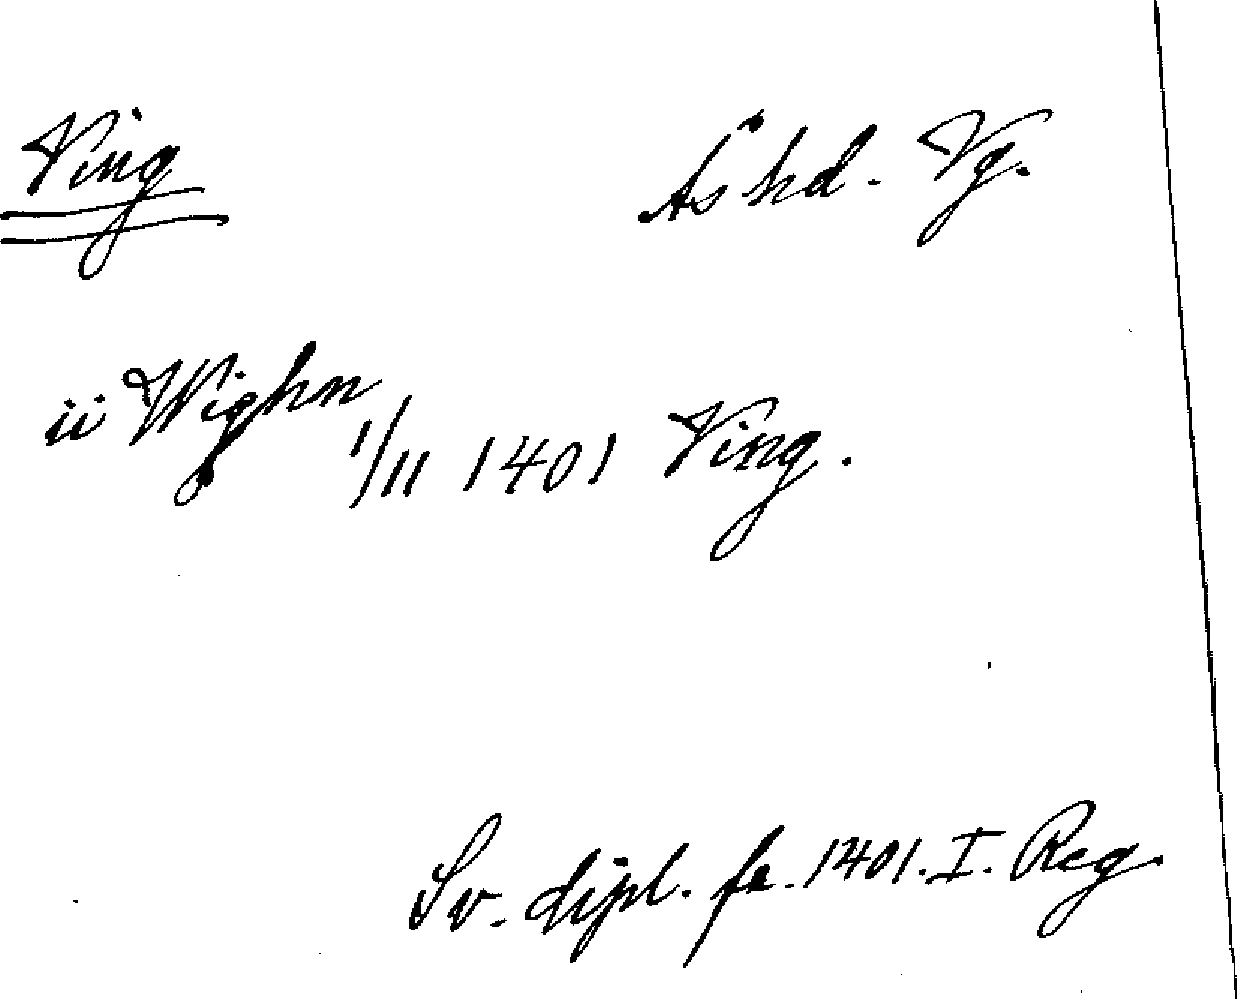 Ving Ås hd. Vg.
ii Wighn 1/11 1401 Ving.
Sv. dipl. fr. 1401. I. Reg.